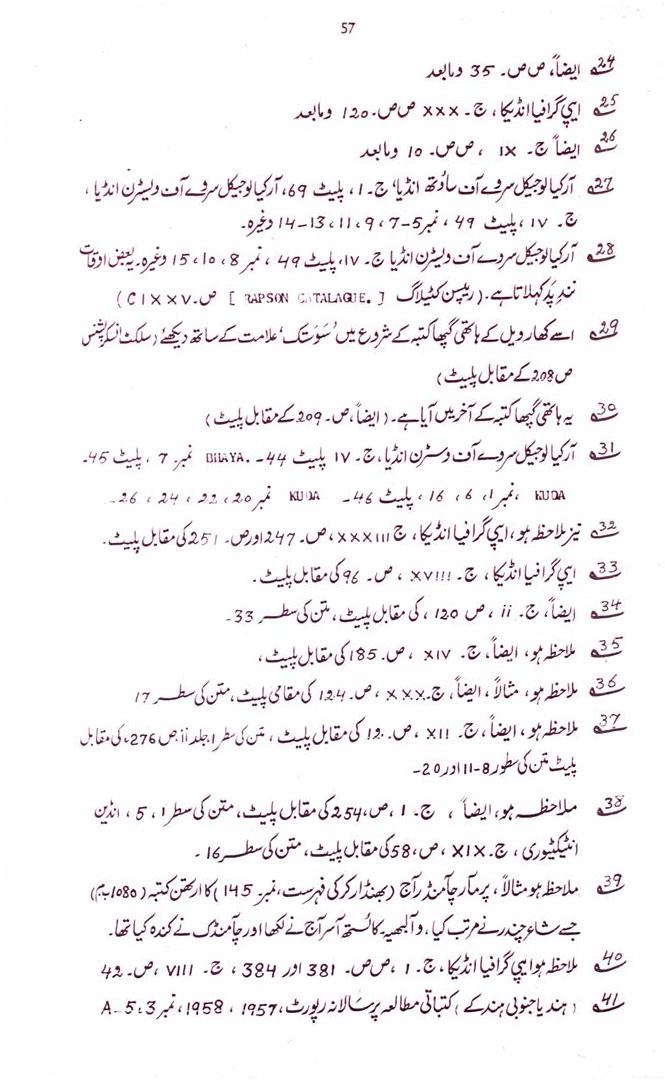 57
24 ایضاً، ص ص۔ 35 ومابعد
25 ایپی گرافیا انڈیکا، ج۔ xxx ص ص۔ 120 ومابعد
26 ایضاً ج۔ IX ، ص ص۔ 10 ومابعد
27 آرکیالوجیکل سروے آف ساؤتھ انڈیا، ج۔ 1، پلیٹ 69، آرکیالوجیکل سروے آف ویسٹرن انڈیا،
ج۔ IV، پلیٹ 49، نمبر 5-7، 9، 11، 13-14 وغیرہ۔
28 آرکیالوجیکل سروے آف ویسٹرن انڈیا ج۔ IV، پلیٹ 49، نمبر 8، 10، 15 وغیرہ۔ یہ بعض اوقات
نندِ پد کہلاتا ہے۔ (ریپسن کٹیلاگ [RAPSON CATALAGUE.] ص۔ CIXXV)
29 اسے کھارویل کے ہاتھی گپھا کتبہ کے شروع میں 'سَوَستک' علامت کے ساتھ دیکھئے (سلکٹ انسکرپشنس
ص 208 کے مقابل پلیٹ)
30 یہ ہاتھی گپھا کتبہ کے آخر میں آیا ہے۔ (ایضاً، ص۔ 209 کے مقابل پلیٹ)
31 آرکیالوجیکل سروے آف وسٹرن انڈیا، ج۔ IV پلیٹ 44۔ BHAYA. نمبر 7، پلیٹ 45۔
KUDA، نمبر 1، 6، 16، پلیٹ 46۔ KUDA نمبر 20، 22، 24، 26۔
32 نیز ملاحظہ ہو، ایپی گرافیا انڈیکا، ج xxxIII، ص۔ 247 اور ص۔ 251 کی مقابل پلیٹ۔
33 ایپی گرافیا انڈیکا، ج۔ XVIII ، ص۔ 96 کی مقابل پلیٹ۔
34 ایضاً، ج۔ ii ، ص 120 ، کی مقابل پلیٹ، متن کی سطر 33۔
35 ملاحظہ ہو، ایضاً، ج۔ XIV ، ص۔ 185 کی مقابل پلیٹ،
36 ملاحظہ ہو، مثالاً، ایضاً، ج۔ xxx ، ص۔ 124 کی مقامی پلیٹ، متن کی سطر 17
37 ملاحظہ ہو، ایضاً، ج۔ XII ، ص۔ 12 کی مقابل پلیٹ، متن کی سطر 1، جلد ii، ص 276، کی مقابل
پلیٹ متن کی سطور 8-11 اور 20۔
38 ملاحظہ ہو، ایضاً ، ج۔ 1، ص، 254 کی مقابل پلیٹ، متن کی سطر 1، 5، انڈین
انٹیکٹیوری ، ج۔ XIX ، ص، 58 کی مقابل پلیٹ، متن کی سطر 16۔
39 ملاحظہ ہو مثالاً، پرمار چامنڈ راج (بھنڈارکر کی فہرست، نمبر۔ 145) کا ارتھن کتبہ (1080 ب م)
جسے شاعر چندر نے مرتب کیا، والبھیہ کائستھ آسراج نے لکھا اور چامنڈک نے کندہ کیا تھا۔
40 ملاحظہ ہو ایپی گرافیا انڈیکا، ج۔ 1، ص ص۔ 381 اور 384 ، ج۔ VIII ، ص۔ 42
41 (ہند یا جنوبی ہند کے) کتباتی مطالعہ پر سالانہ رپورٹ، 1957 ، 1958، نمبر 3، 5-A